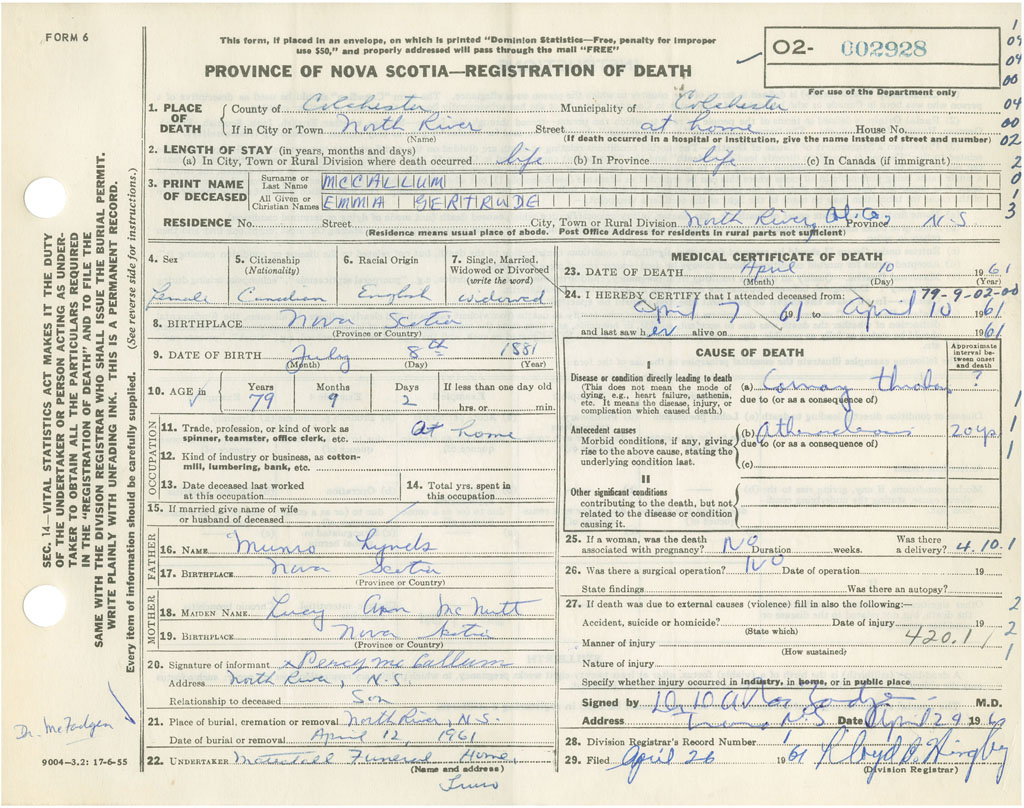 FORM 6
This form, if placed in an envelope, on which is printed "Dominion Statistics—Free, penalty for improper
use $50," and properly addressed will pass through the mail "FREE"
PROVINCE OF NOVA SCOTIA—REGISTRATION OF DEATH
02- 002928
For use of the Department only
1. PLACE OF DEATH
County of Colchester Municipality of Colchester
If in City or Town North River Street at home House No.
(Name) (If death occurred in a hospital or institution, give the name instead of street and number)
2. LENGTH OF STAY (in years, months and days)
(a) In City, Town or Rural Division where death occurred life (b) In Province life (c) In Canada (if immigrant)
3. PRINT NAME OF DECEASED
Surname or Last Name McCALLUM
All Given or Christian Names EMMA GERTRUDE
RESIDENCE No. Street City, Town or Rural Division North River, Col. Co, Province N S
(Residence means usual place of abode. Post Office Address for residents in rural parts not sufficient)
4. Sex
Female
5. Citizenship (Nationality)
Canadian
6. Racial Origin
English
7. Single, Married, Widowed or Divorced (write the word)
widowed
8. BIRTHPLACE Nova Scotia
(Province or Country)
9. DATE OF BIRTH July 8th 1881
(Month) (Day) (Year)
10. AGE in Years Months Days If less than one day old
79 9 2 hrs. or min.
OCCUPATION
11. Trade, profession, or kind of work as spinner, teamster, office clerk, etc. At home
12. Kind of industry or business, as cotton-mill, lumbering, bank, etc.
13. Date deceased last worked at this occupation
14. Total yrs. spent in this occupation
15. If married give name of wife or husband of deceased
FATHER
16. NAME Munro Lynds
17. BIRTHPLACE Nova Scotia
(Province or Country)
MOTHER
18. MAIDEN NAME Lucy Ann McNutt
19. BIRTHPLACE Nova Scotia
(Province or Country)
20. Signature of informant x Percy McCallum
Address North River, N.S.
Relationship to deceased Son
21. Place of burial, cremation or removal North River, N.S.
Date of burial or removal April 12, 1961
22. UNDERTAKER Funeral Home,
(Name and address)
Truro
MEDICAL CERTIFICATE OF DEATH
23. DATE OF DEATH April 10 1961
(Month) (Day) (Year)
24. I HEREBY CERTIFY that I attended deceased from: 79-9-02-00
April 7 1961 to April 10 1961
and last saw her alive on 1961
CAUSE OF DEATH
Approximate interval between onset and death
I
Disease or condition directly leading to death
(This does not mean the mode of dying, e.g., heart failure, asthenia, etc. It means the disease, injury, or complication which caused death.)
(a) ?
due to (or as a consequence of)
Antecedent causes
Morbid conditions, if any, giving rise to the above cause, stating the underlying condition last.
(b) 20 yrs
due to (or as a consequence of)
(c)
II
Other significant conditions
contributing to the death, but not related to the disease or condition causing it.
25. If a woman, was the death associated with pregnancy? NO Duration weeks. Was there a delivery? 4.10.1
26. Was there a surgical operation? NO Date of operation 19
State findings Was there an autopsy?
27. If death was due to external causes (violence) fill in also the following:—
Accident, suicide or homicide? Date of injury 19
(State which)
Manner of injury 420.1
(How sustained)
Nature of injury
Specify whether injury occurred in industry, in home, or in public place
Signed by M.D.
Address Truro NS Date April 29 19
28. Division Registrar's Record Number
29. Filed April 26 1961
(Division Registrar)
SEC. 14—VITAL STATISTICS ACT MAKES IT THE DUTY
OF THE UNDERTAKER OR PERSON ACTING AS UNDER-
TAKER TO OBTAIN ALL THE PARTICULARS REQUIRED
IN THE "REGISTRATION OF DEATH" AND TO FILE THE
SAME WITH THE DIVISION REGISTRAR WHO SHALL ISSUE THE BURIAL PERMIT.
WRITE PLAINLY WITH UNFADING INK. THIS IS A PERMANENT RECORD.
Every item of information should be carefully supplied. (See reverse side for instructions.)
Dr. McFadgen
9004—3.2: 17-6-55
1
09
04
00
04
00
02
2
0
1
3
1
1
1
1
2
2
1